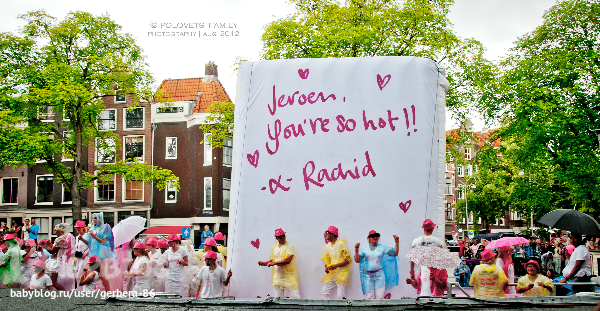 © POLOVETS FAMILY
PHOTOGRAPHY | AUG 2012
Jeroen,
You're so hot!!
-x- Rachid
babyblog.ru/user/gerbera-86